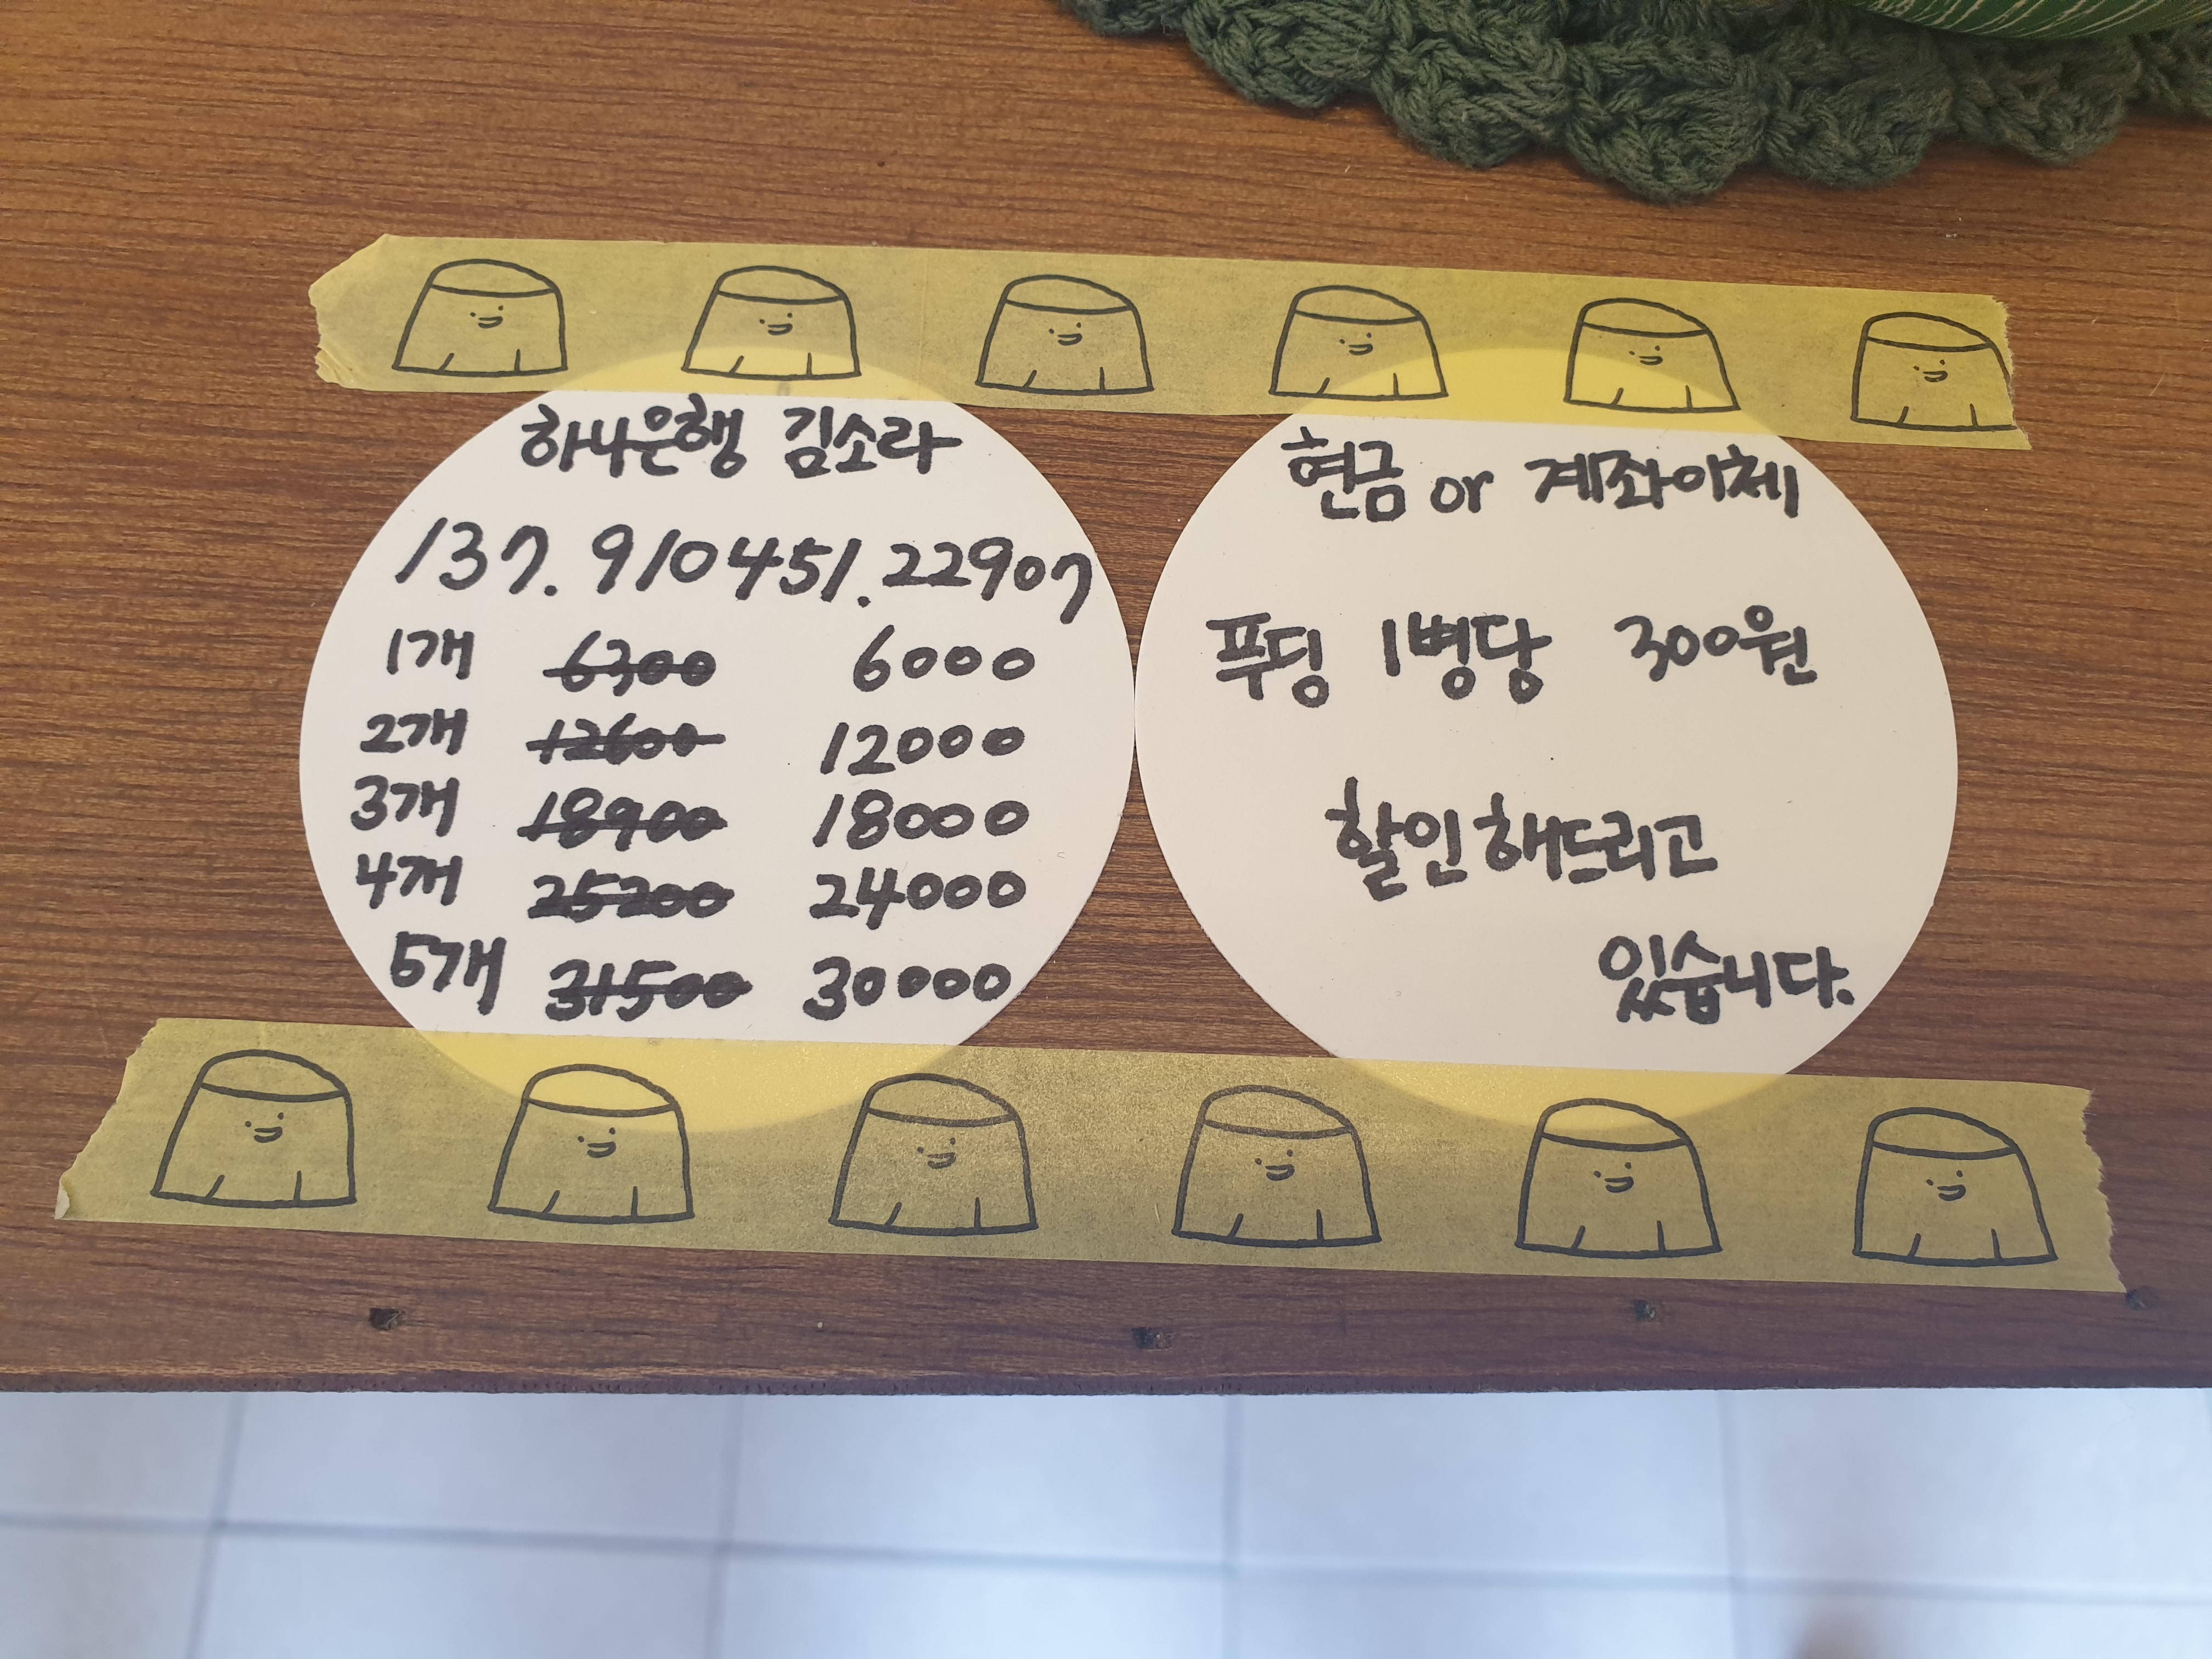 하나은행 김소라
137. 910451. 22907
1개 6300 6000
2개 12600 12000
3개 18900 18000
4개 25200 24000
5개 31500 30000
현금 or 계좌이체
푸딩 1병당 300원
할인해드리고
있습니다.